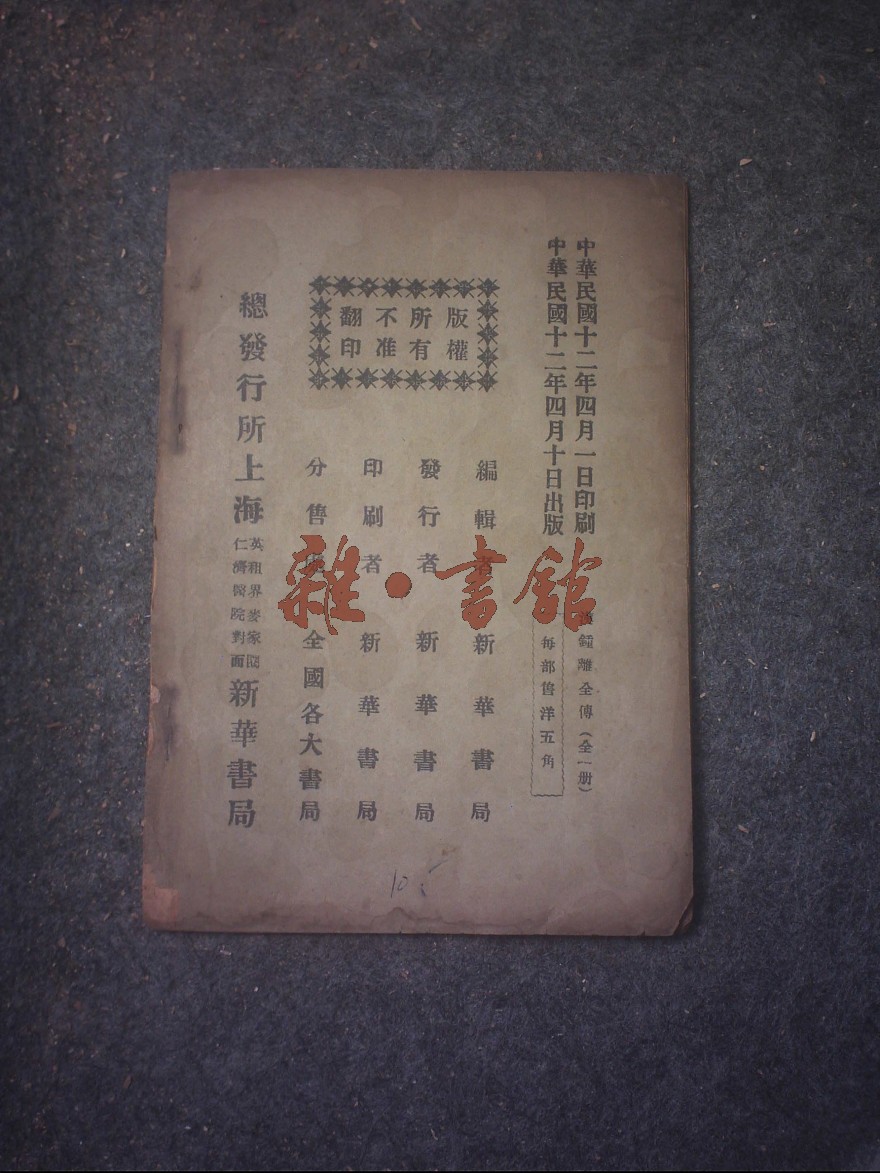 中華民國十二年四月一日印刷
中華民國十二年四月十日出版
漢鍾離全傳(全一册)
每部售洋五角
版權
所有
不准
翻印
編輯者 新華書局
發行者 新華書局
印刷者 新華書局
分售處 全國各大書局
總發行所上海
英租界麥家圈
仁濟醫院對面
新華書局
雜·書館
10